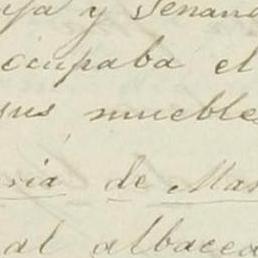 y Senan
ocupaba el
sus muebles
ria de Mar
al albacea